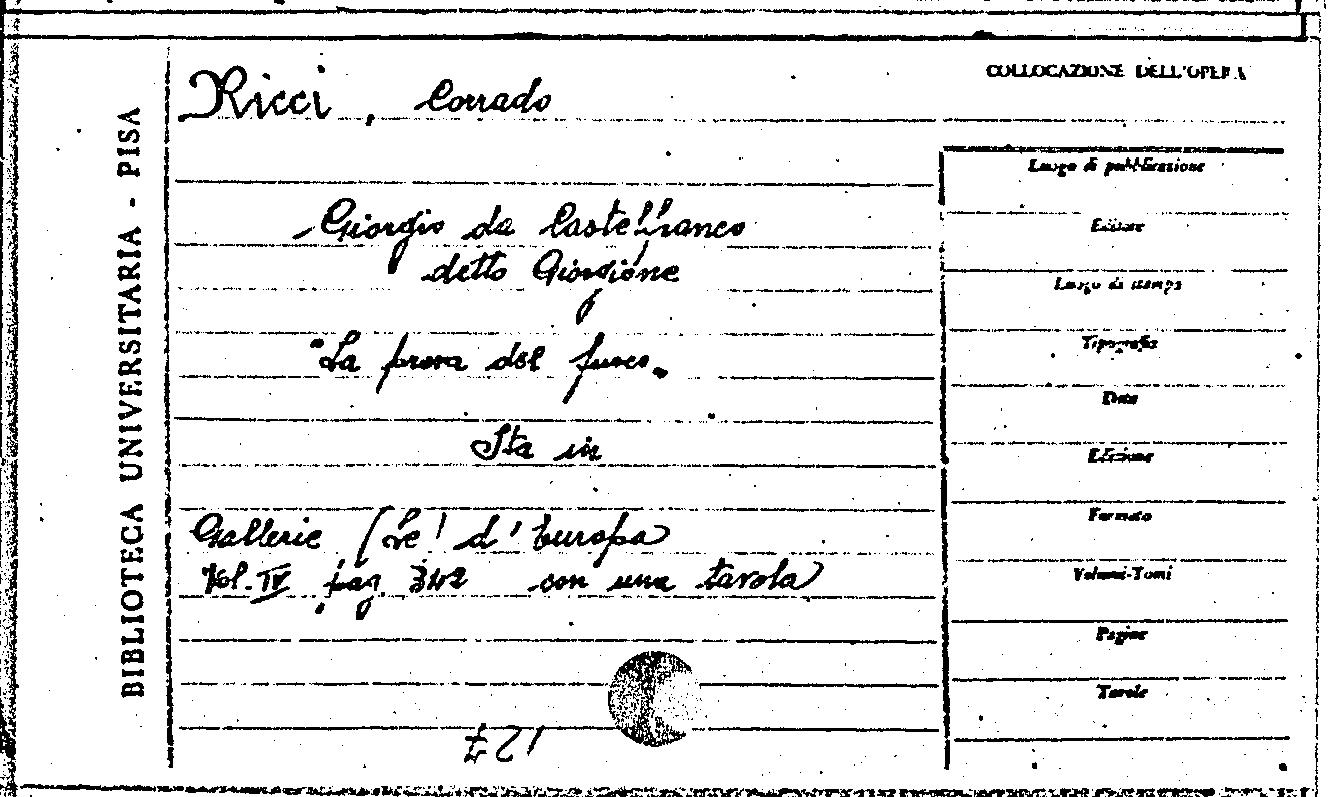 BIBLIOTECA UNIVERSITARIA - PISA
Ricci, Corrado
Giorgio da Castelfranco
detto Giorgione
"La prova del fuoco"
Sta in
Gallerie (Le) d'Europa
Vol. IV pag. 342 con una tavola
COLLOCAZIONE DELL'OPERA
Luogo di pubblicazione
Editore
Luogo di stampa
Tipografia
Data
Edizione
Formato
Volumi-Tomi
Pagine
Tavole